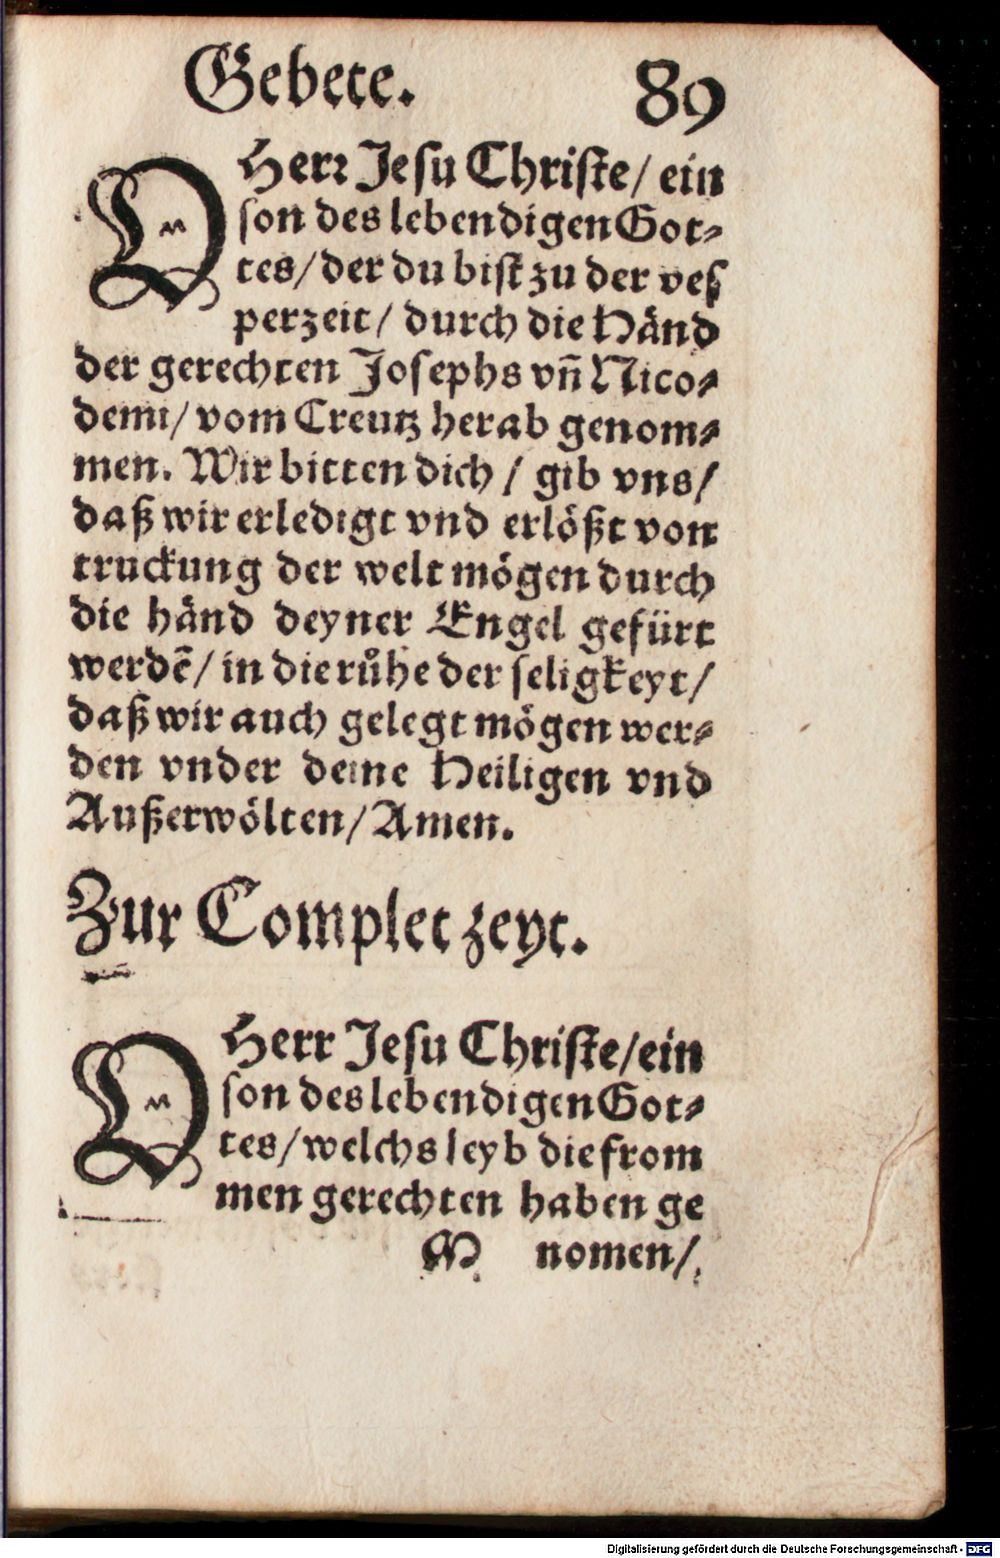 Gebete. 89
O Herꝛ Jesu Christe/ ein
son des lebendigen Got⸗
tes/ der du bist zu der ves
perzeit/ durch die Händ
der gerechten Josephs vñ Nico⸗
demi/ vom Creutz herab genom⸗
men. Wir bitten dich / gib vns/
daß wir erledigt vnd erlößt von
truckung der welt mögen durch
die händ deyner Engel gefürt
werdẽ/ in die růhe der seligkeyt/
daß wir auch gelegt mögen wer⸗
den vnder deine Heiligen vnd
Außerwölten/ Amen.
Zur Complet zeyt.
O Herr Jesu Christe/ ein
son des lebendigen Got⸗
tes/ welchs leyb die from
men gerechten haben ge
M nomen/
Digitalisierung gefördert durch die Deutsche Forschungsgemeinschaft - DFG